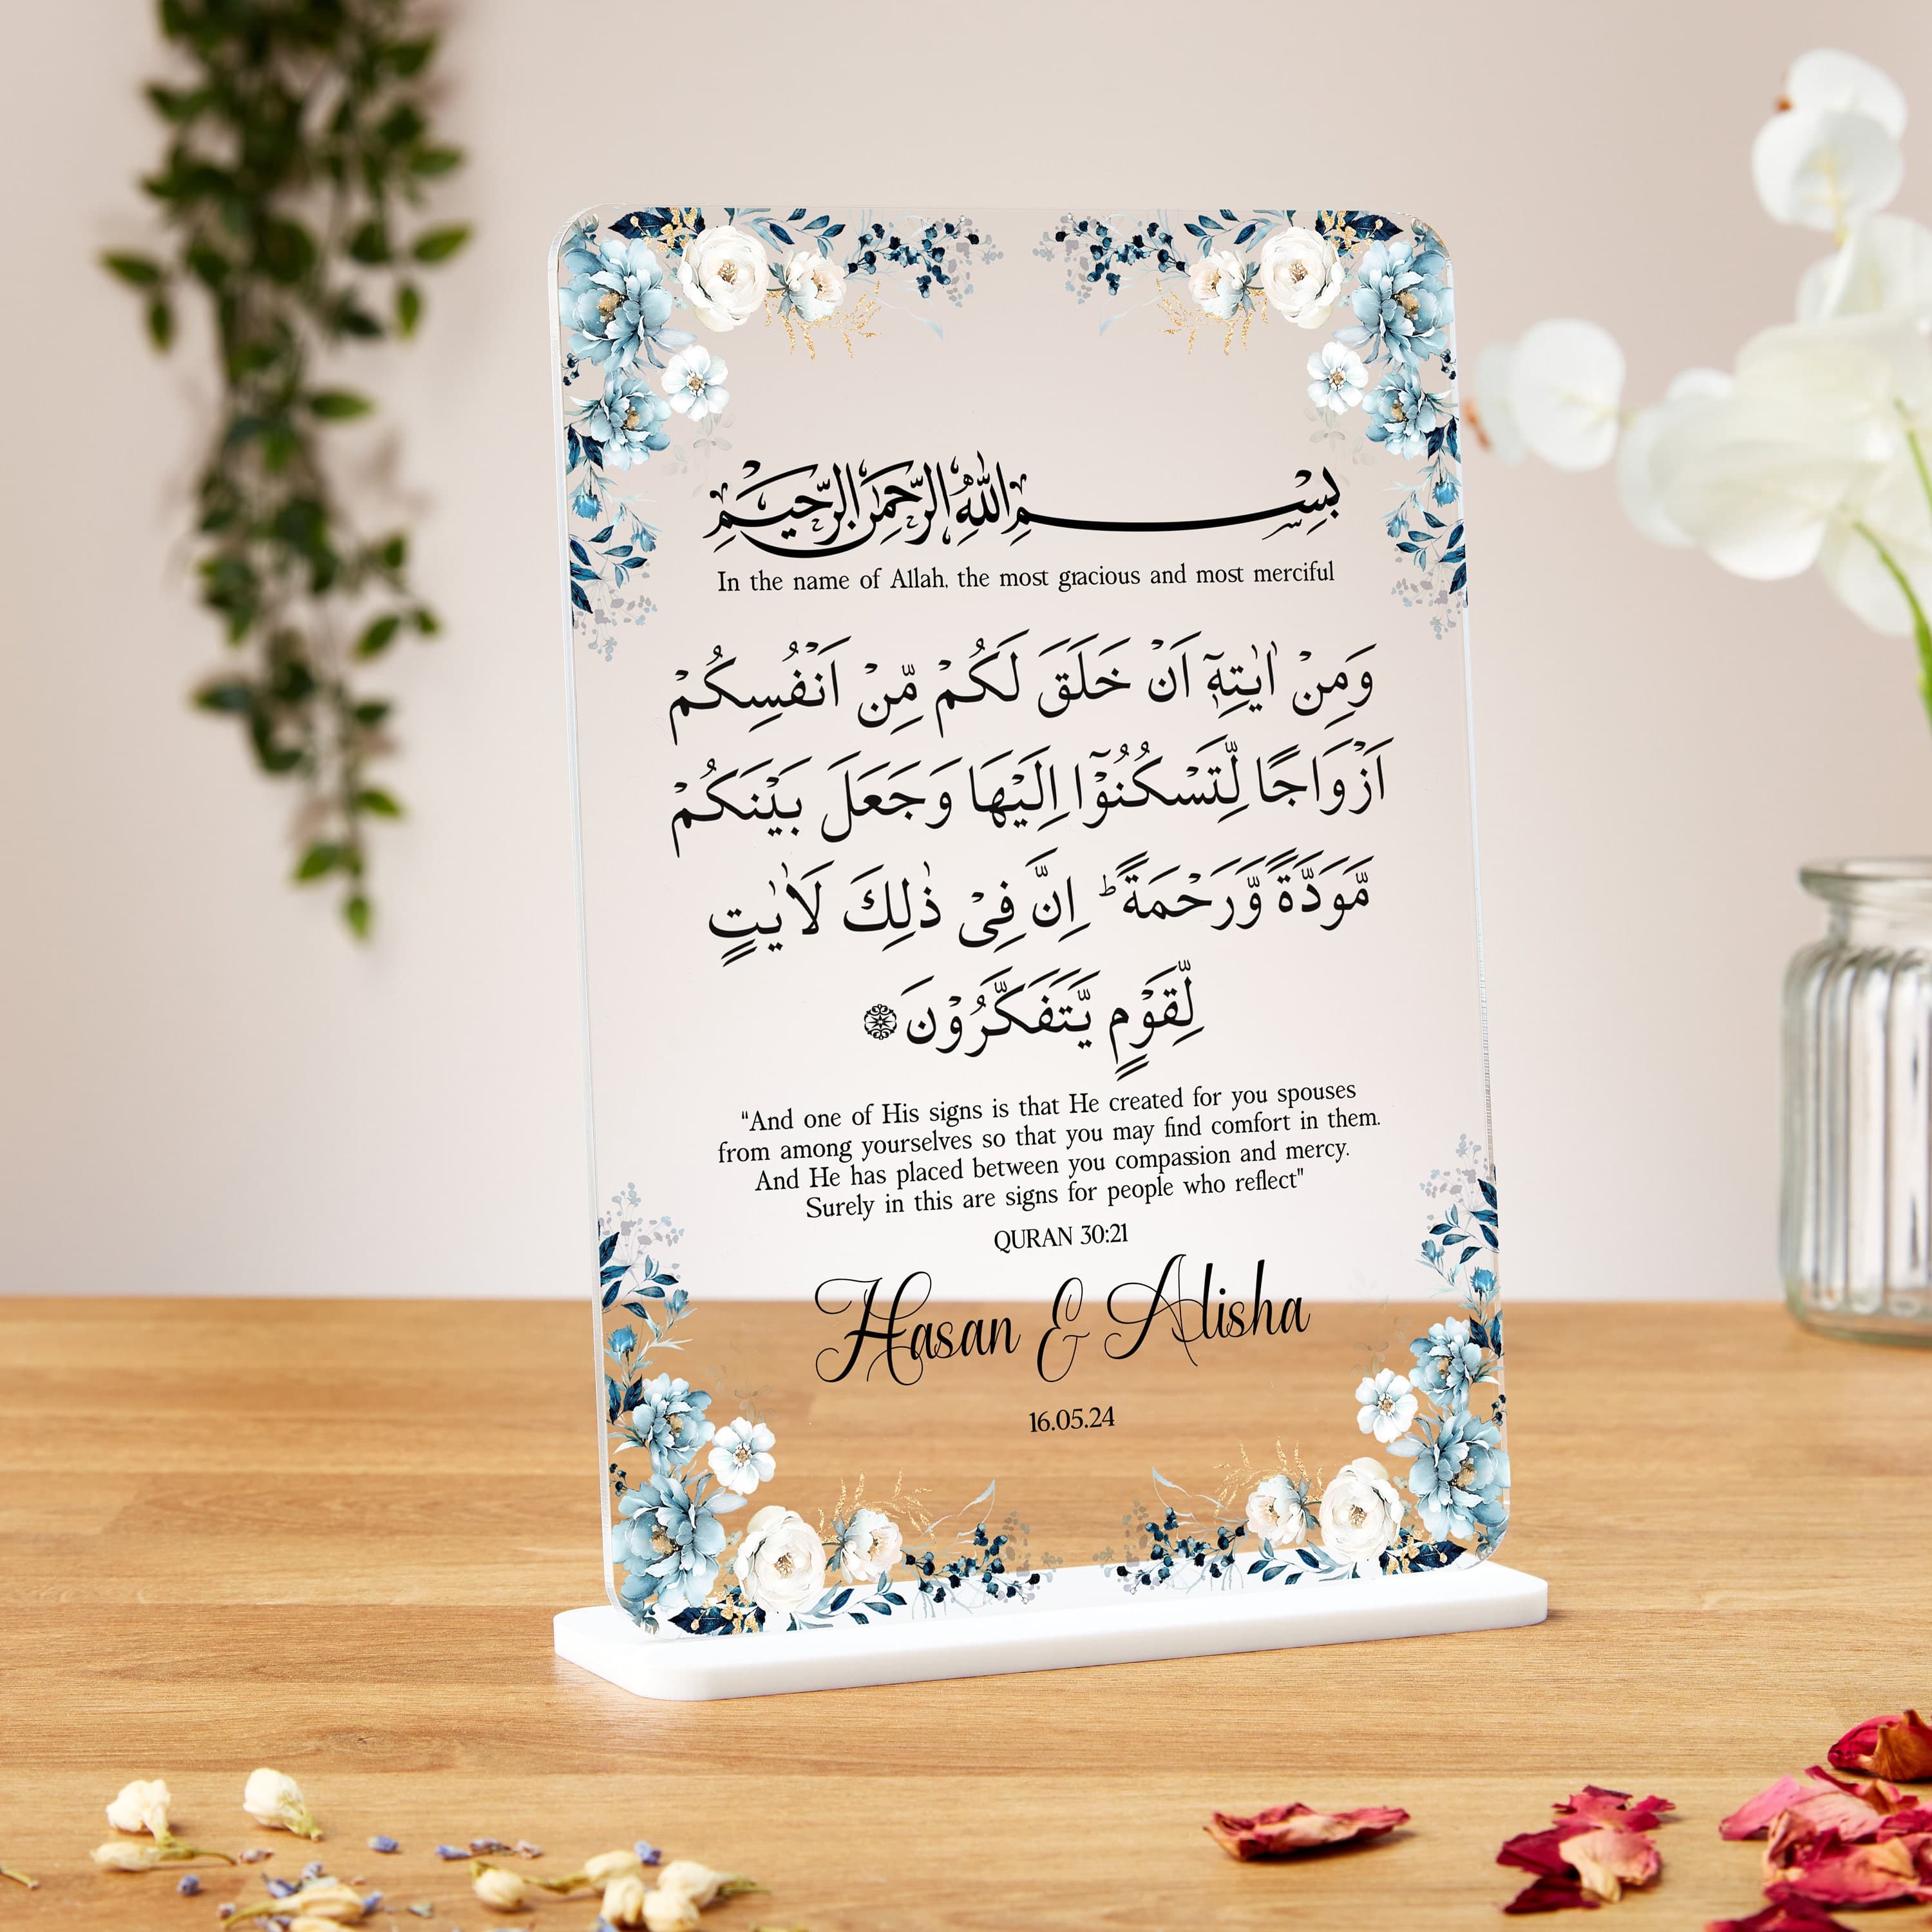 بِسْمِ اللهِ الرَّحْمٰنِ الرَّحِيْمِ
In the name of Allah, the most gracious and most merciful
وَمِنْ اٰيٰتِهٖٓ اَنْ خَلَقَ لَكُمْ مِّنْ اَنْفُسِكُمْ
اَزْوَاجًا لِّتَسْكُنُوْٓا اِلَيْهَا وَجَعَلَ بَيْنَكُمْ
مَّوَدَّةً وَّرَحْمَةً ؕ اِنَّ فِيْ ذٰلِكَ لَاٰيٰتٍ
لِّقَوْمٍ يَّتَفَكَّرُوْنَ ۞
"And one of His signs is that He created for you spouses
from among yourselves so that you may find comfort in them.
And He has placed between you compassion and mercy.
Surely in this are signs for people who reflect"
QURAN 30:21
Hasan & Alisha
16.05.24